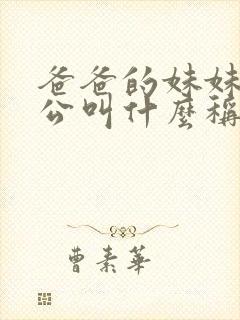 爸爸的妹妹
公叫什麼稱
曹素華